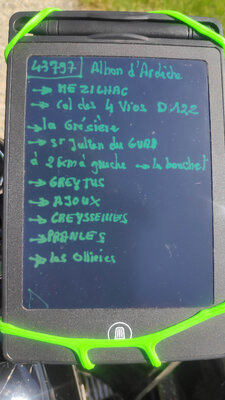 43797 Albon d'Ardèche
→ MEZILHAC
→ Col des 4 Vios D122
→ la Grésière
→ St Julien du GUA
à 2 km à gauche → le bouchet
→ GREYTUS
→ AJOUX
→ CREYSSEILLES
→ PRANLES
→ Les Ollières